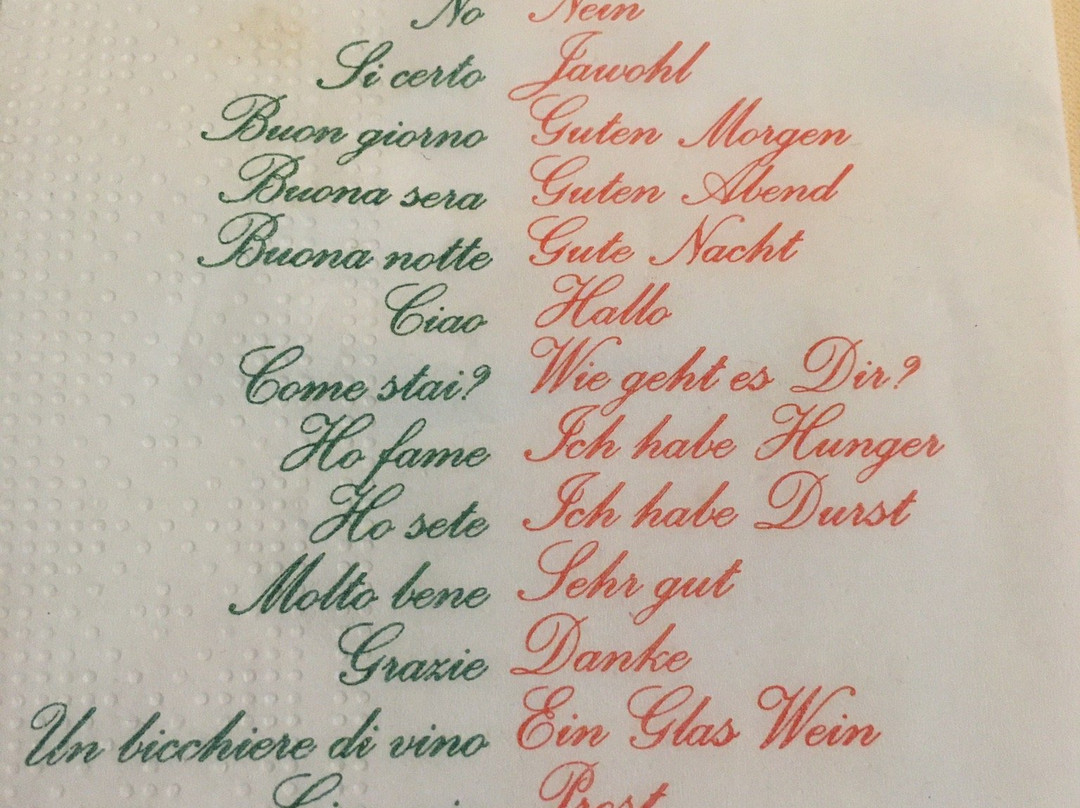 No Nein
Si certo Jawohl
Buon giorno Guten Morgen
Buona sera Guten Abend
Buona notte Gute Nacht
Ciao Hallo
Come stai? Wie geht es Dir?
Ho fame Ich habe Hunger
Ho sete Ich habe Durst
Molto bene Sehr gut
Grazie Danke
Un bicchiere di vino Ein Glas Wein
Prost